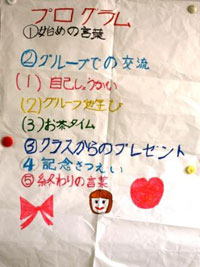 プログラム
①始めの言葉
②グループでの交流
(1) 自己しょうかい
(2) グループ遊び
(3) お茶タイム
③クラスからのプレゼント
4 記念さつえい
⑤終わりの言葉